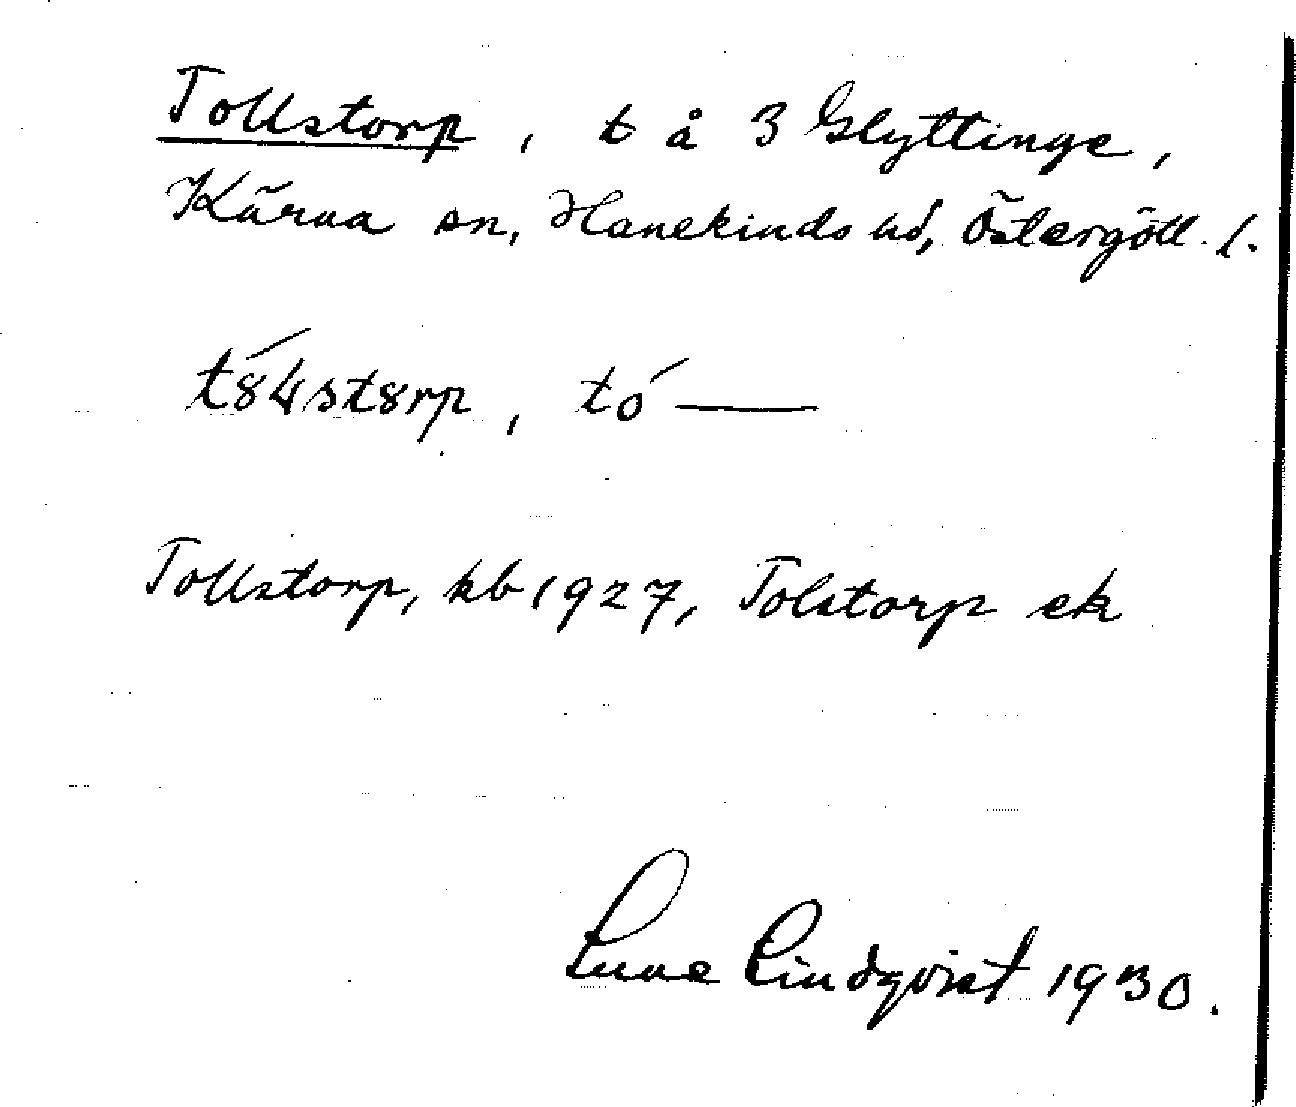 Tollstorp, t å 3 Glyttinge,
Kärna sn, Hanekinds hd, Östergötl. l.
tó̀ —
Tollstorp, kb 1927, Tolstorp ek
Lindqvist 1930.